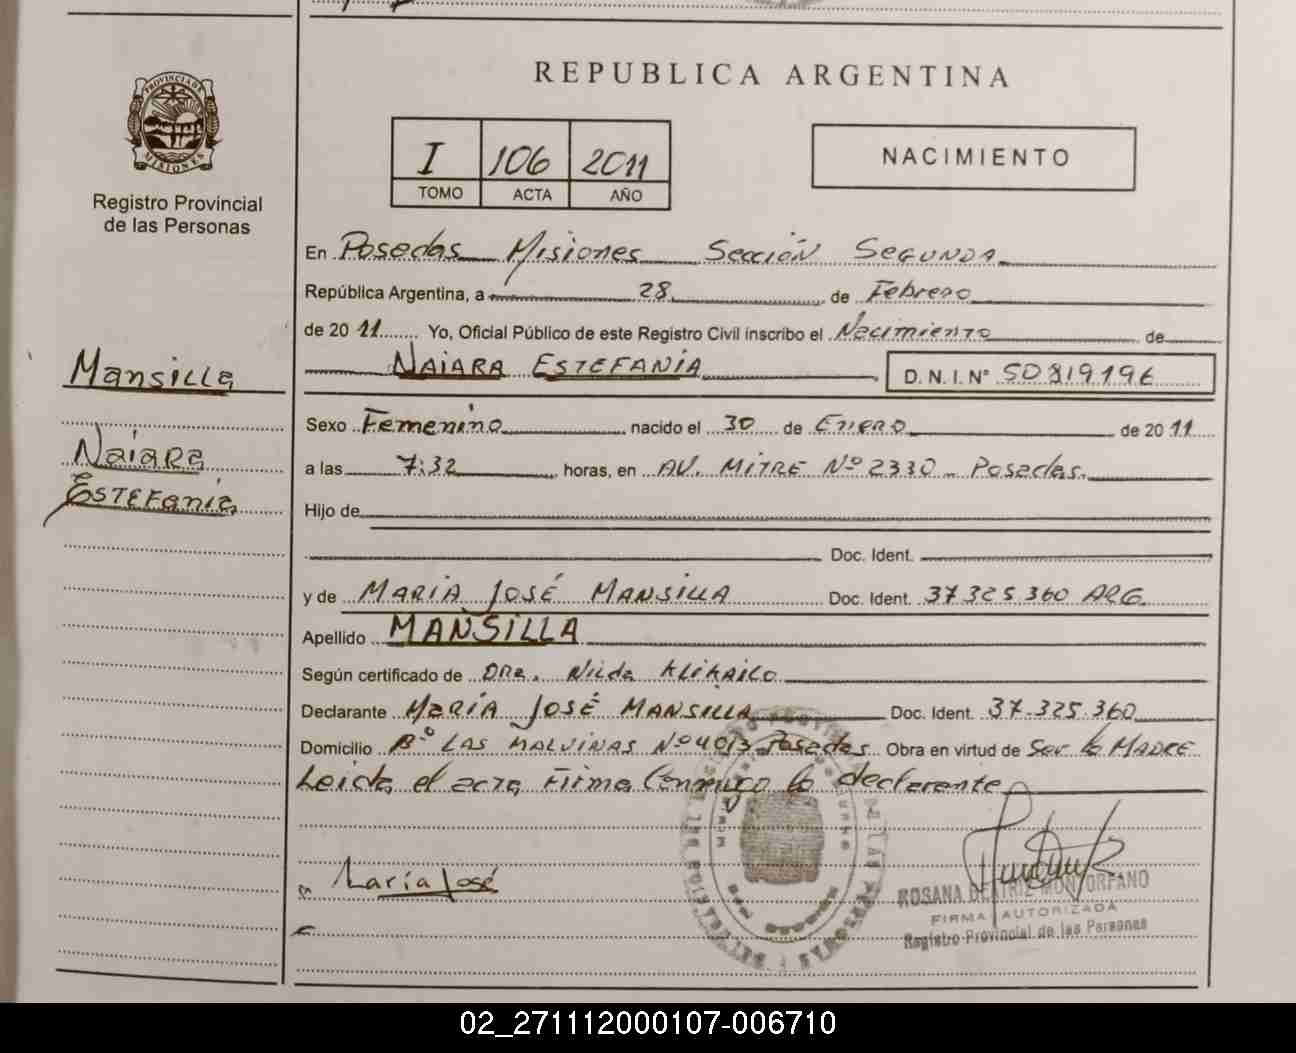 REPUBLICA ARGENTINA
PROVINCIA DE
MISIONES
Registro Provincial
de las Personas
I 106 2011
TOMO ACTA AÑO
NACIMIENTO
En Posadas Misiones Sección Segunda
República Argentina, a 28 de Febrero
de 2011 Yo, Oficial Público de este Registro Civil inscribo el Nacimiento de
NAIARA ESTEFANÍA D.N.I.Nº 50819196
Mansilla
Naiara
Estefanía
Sexo Femenino nacido el 30 de Enero de 2011
a las 7:32 horas, en AV. MITRE Nº 2330 - Posadas.
Hijo de
Doc. Ident.
y de MARÍA JOSÉ MANSILLA Doc. Ident. 37325360 ARG.
Apellido MANSILLA
Según certificado de Dra. Nilda
Declarante MARÍA JOSÉ MANSILLA Doc. Ident. 37.325.360
Domicilio Bº LAS MALVINAS Nº 4013 Posadas Obra en virtud de Ser la MADRE
Leida el acta Firma Conmigo la declarante
María José
ROSANA BEATRIZ MONTORFANO
FIRMA AUTORIZADA
Registro Provincial de las Personas
02_271112000107-006710